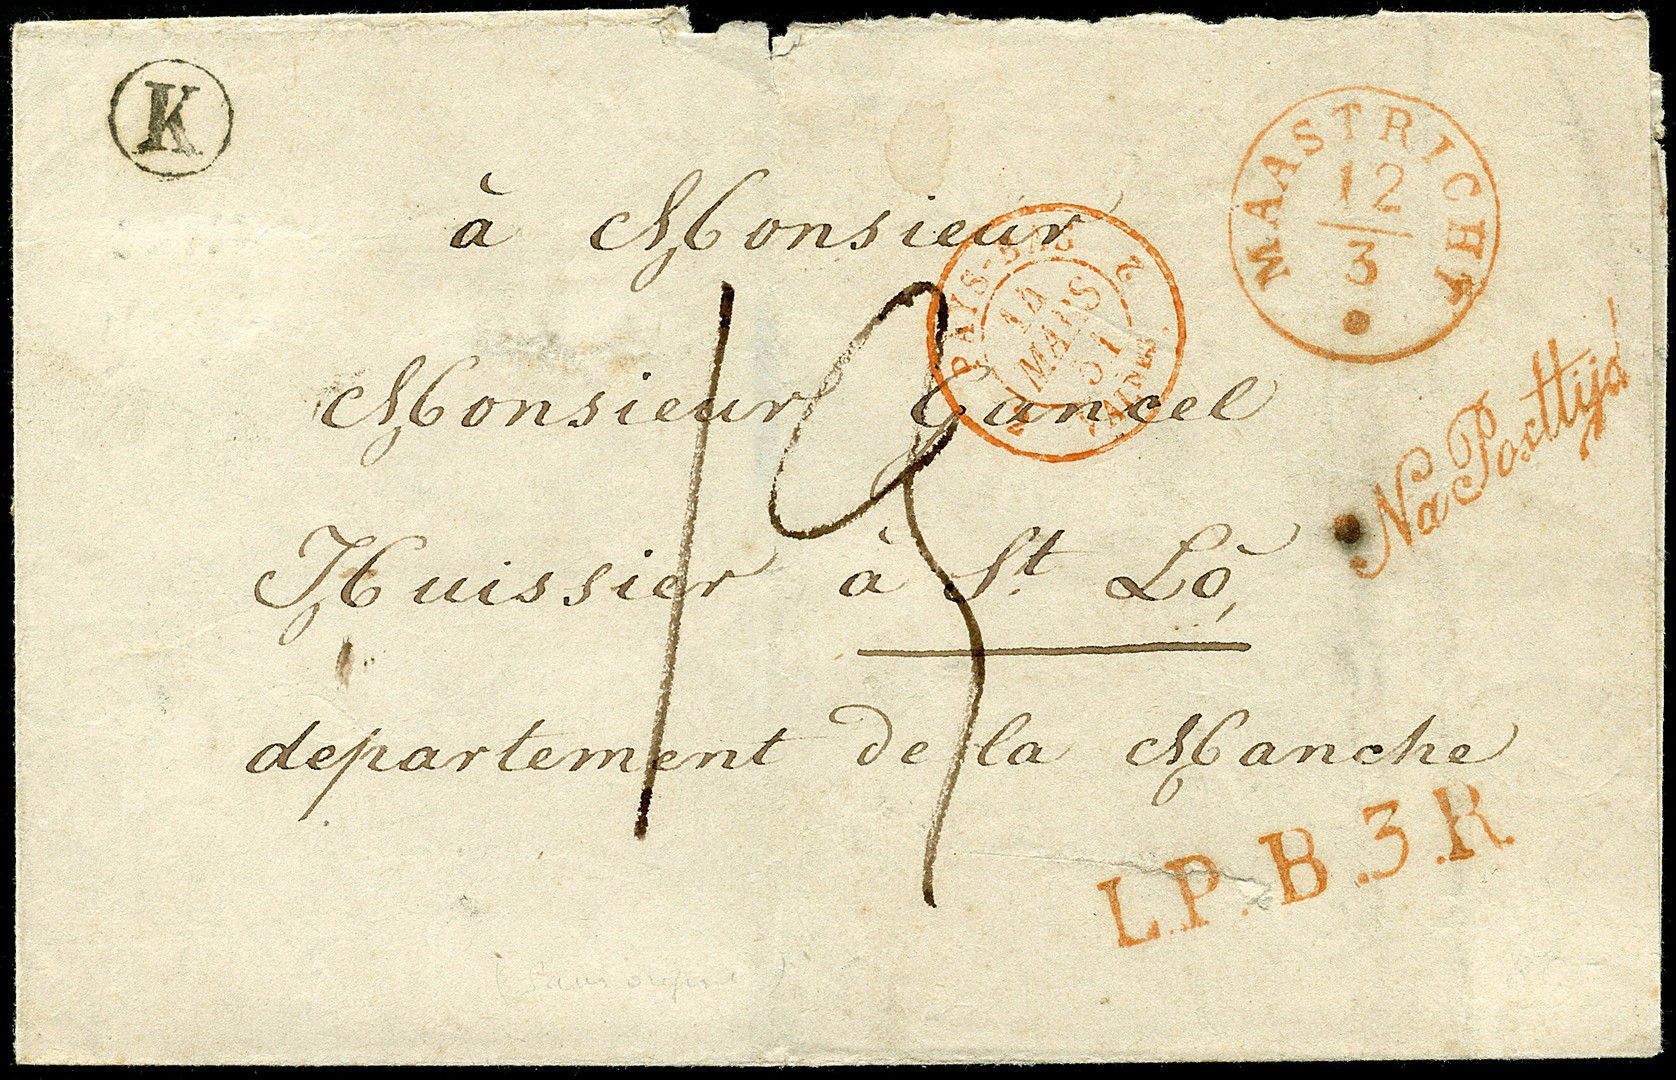 K
MAASTRICHT
12
3
à Monsieur
PAYS-BAS 2
14
MARS
51
Monsieur Gancel
Na Posttijd
Huissier à St. Lô,
departement de la Manche
L.P.B.3.R.